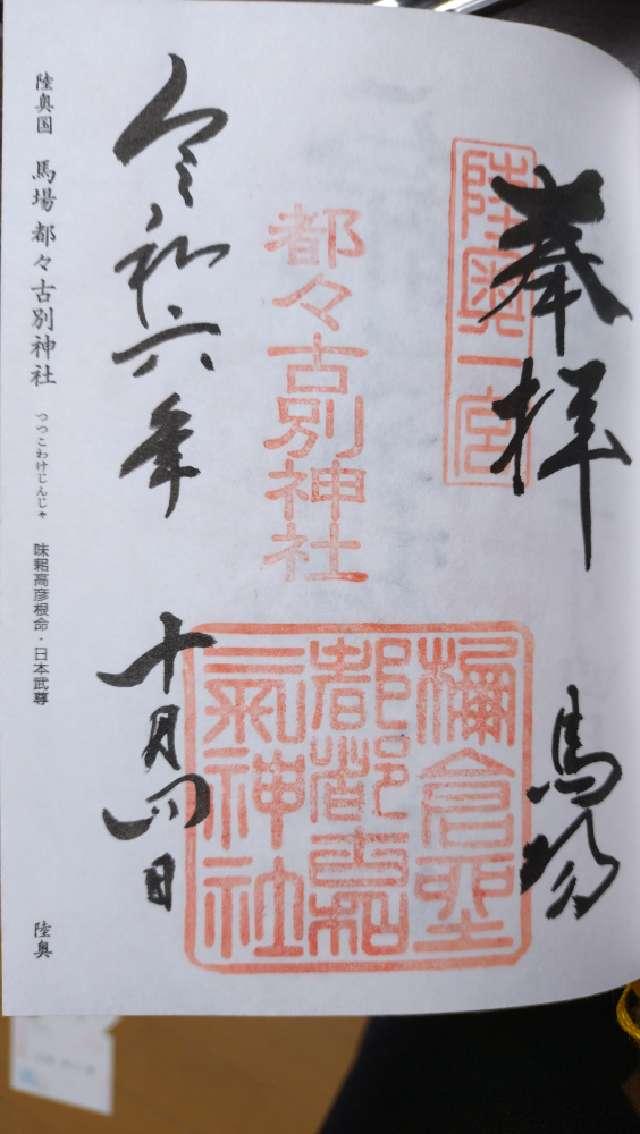 奉拝
馬場
陸奥一宮
都々古別神社
令和六年
十月四日
陸奥国 馬場都々古別神社 つつこわけじんじゃ 味耜高彦根命・日本武尊
陸奥